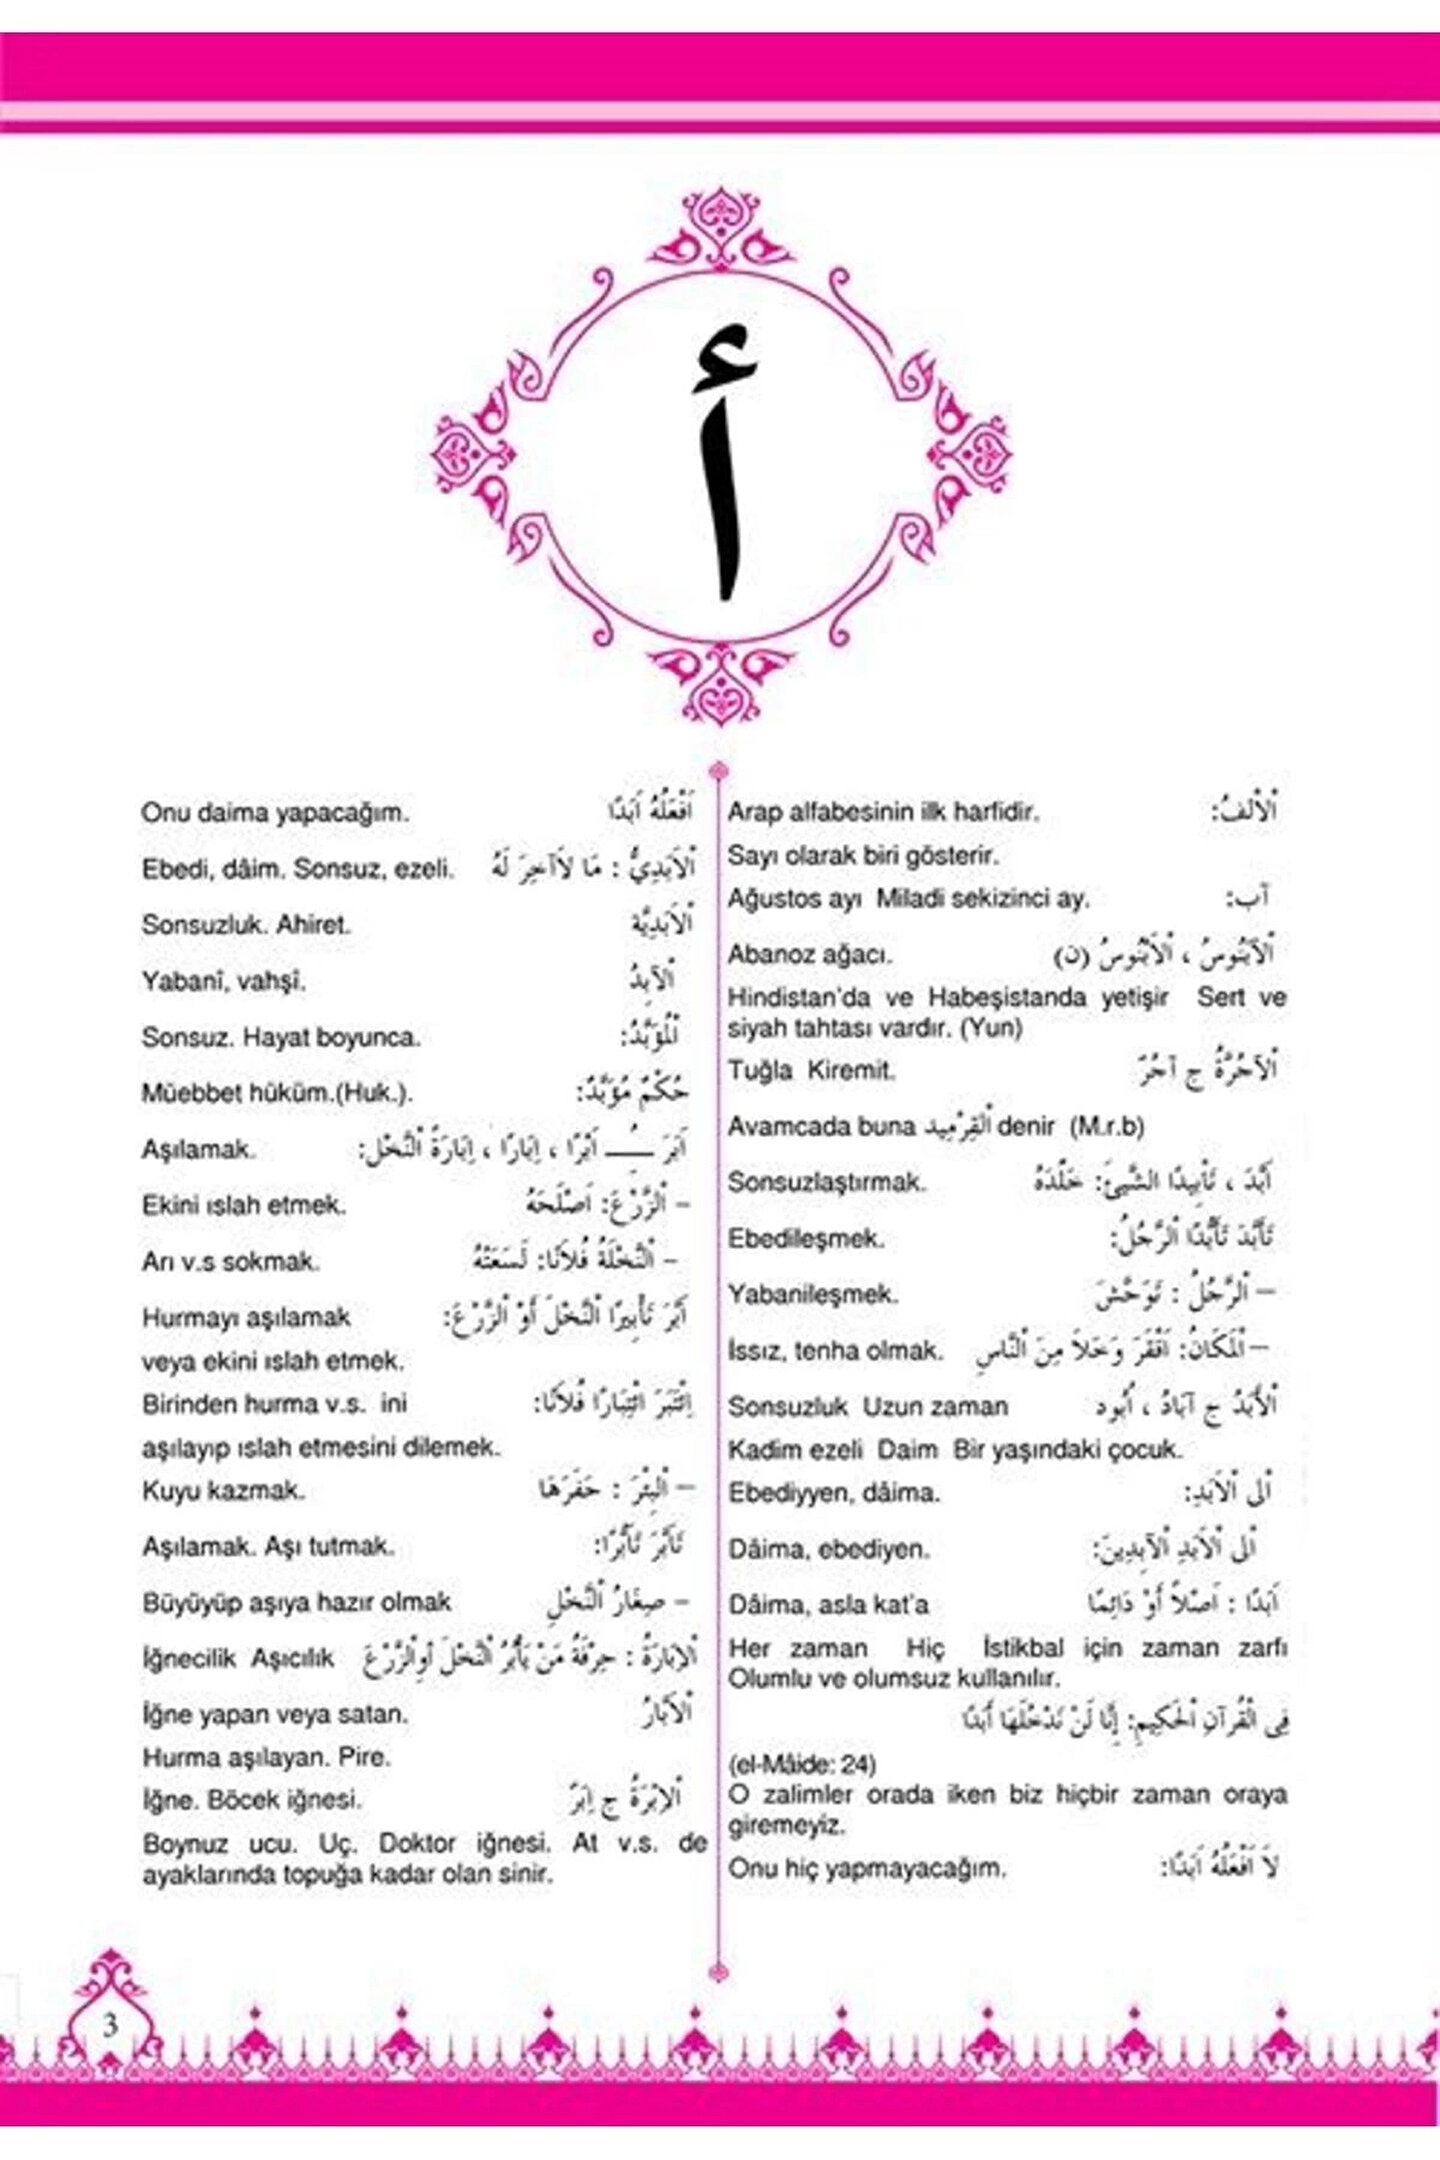 أ
Arap alfabesinin ilk harfidir. اَلْأَلْفُ:
Sayı olarak biri gösterir.
Ağustos ayı Miladi sekizinci ay. آب:
Abanoz ağacı. اَلْآبَنُوسُ ، اَلْأَبْنُوسُ (ن)
Hindistan'da ve Habeşistanda yetişir Sert ve
siyah tahtası vardır. (Yun)
Tuğla Kiremit. اَلْآجُرَّةُ ج آجُرٌ
Avamcada buna اَلْقِرْمِيد denir (M.r.b)
Sonsuzlaştırmak. اَبَّدَ ، تَأْبِيدًا الشَّيْئَ: خَلَّدَهُ
Ebedileşmek. تَأَبَّدَ تَأَبُّدًا اَلرَّجُلُ:
Yabanileşmek. – اَلرَّجُلُ : تَوَحَّشَ
İssız, tenha olmak. – اَلْمَكَانُ: اَقْفَرَ وَخَلاَ مِنَ النَّاسِ
Sonsuzluk Uzun zaman اَلْأَبَدُ ج آبَادُ ، اُبُود
Kadim ezeli Daim Bir yaşındaki çocuk.
Ebediyyen, dâima. اَلى اَلْاَبَدِ:
Dâima, ebediyen. اَلى اَلْاَبَدِ اَلْآبِدِينَ:
Dâima, asla kat'a اَبَدًا : اَصْلاً أَوْ دَائِمًا
Her zaman Hiç İstikbal için zaman zarfı
Olumlu ve olumsuz kullanılır.
فِى الْقُرْآنِ اَلْحَكِيمِ: إِنَّا لَنْ نَدْخُلَهَا أَبَدًا
(el-Mâide: 24)
O zalimler orada iken biz hiçbir zaman oraya
giremeyiz.
Onu hiç yapmayacağım. لاَ اَفْعَلُهُ اَبَدًا:
Onu daima yapacağım. اَفْعَلُهُ اَبَدًا
Ebedi, dâim. Sonsuz, ezeli. اَلْاَبَدِيُّ : مَا لاَآخِرَ لَهُ
Sonsuzluk. Ahiret. اَلْاَبَدِيَّة
Yabanî, vahşî. اَلْآبِدُ
Sonsuz. Hayat boyunca. اَلْمُؤَبَّدُ:
Müebbet hüküm.(Huk.). حُكْمٌ مُؤَبَّدٌ:
Aşılamak. اَبَرَ ـُـ اَبْرًا ، اِبَارًا ، اِبَارَةً اَلنَّخْلِ:
Ekini ıslah etmek. – اَلزَّرْعَ: اَصْلَحَهُ
Arı v.s sokmak. – اَلنَّحْلَةُ فُلاَنًا: لَسَعَتْهُ
Hurmayı aşılamak اَبَّرَ تَأْبِيرًا اَلنَّخْلَ أَوْ اَلزَّرْعَ:
veya ekini ıslah etmek.
Birinden hurma v.s. ini اِئْتَبَرَ ائْتِبَارًا فُلاَنًا:
aşılayıp ıslah etmesini dilemek.
Kuyu kazmak. – اَلْبِئْرَ : حَفَرَهَا
Aşılamak. Aşı tutmak. تَأَبَّرَ تَأَبُّرًا:
Büyüyüp aşıya hazır olmak – صِغَارُ اَلنَّخْلِ
İğnecilik Aşıcılık اَلْاِبَارَةُ : حِرْفَةُ مَنْ يَأْبُرُ اَلنَّخْلَ أَوِالزَّرْعَ
İğne yapan veya satan. اَلْاَبَّارُ
Hurma aşılayan. Pire.
İğne. Böcek iğnesi. اَلْاِبْرَةُ ج اِبَرٌ
Boynuz ucu. Uç. Doktor iğnesi. At v.s. de
ayaklarında topuğa kadar olan sinir.
3